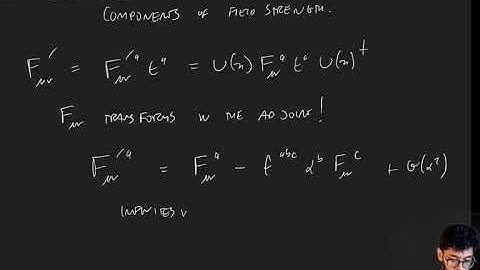 COMPONENTS OF FIELD STRENGTH.
F'_μν = F'^a_μν t^a = U(x) F^a_μν t^a U(x)^†
F_μν TRANSFORMS IN THE ADJOINT!
F'^a_μν = F^a_μν - f^abc α^b F^c_μν + O(α²)